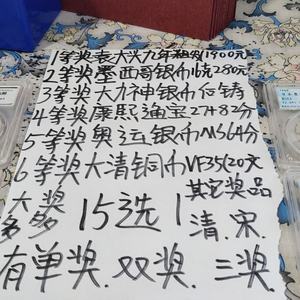 1等奖袁大头九年粗发1400元
2等奖墨西哥银币优280元
3等奖大九神银币白铸
4等奖康熙通宝27+82分
5等奖奥运银币MS64分
6等奖大清铜币VF35120元
大奖多多
15选1
其它奖品清.宋.
有单奖.双奖.三奖.